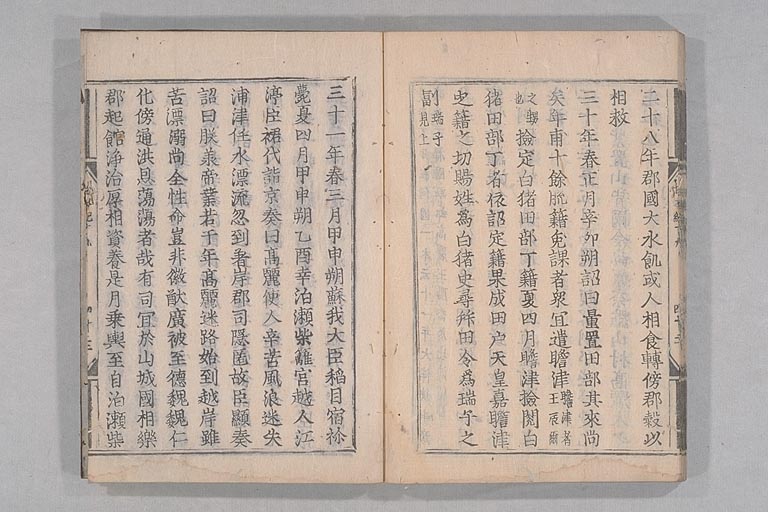 二十八年郡國大水飢或人相食轉傍郡穀以
相救
三十年春正月辛卯朔詔曰量置田部其來尚
矣年甫十餘脫籍免課者衆宜遣膽津膽津者王辰爾
之甥也檢定白猪田部丁籍夏四月膽津檢閱白
猪田部丁者依詔定籍果成田戶天皇嘉膽津
定籍之功賜姓爲白猪史尋拜田令爲瑞子之
副瑞子見上
三十一年春三月甲申朔蘇我大臣稻目宿祢
薨夏四月甲申朔乙酉幸泊瀬柴籬宮越人江
渟臣裙代詣京奏曰高麗使人辛苦風浪迷失
浦津任水漂流忽到着岸郡司隱匿故臣顯奏
詔曰朕承帝業若干年高麗迷路始到越岸雖
苦漂溺尚全性命豈非徽猷廣被至德魏魏仁
化傍通洪恩蕩蕩者哉有司宜於山城國相樂
郡起館淨治厚相資養是月乘輿至自泊瀬柴